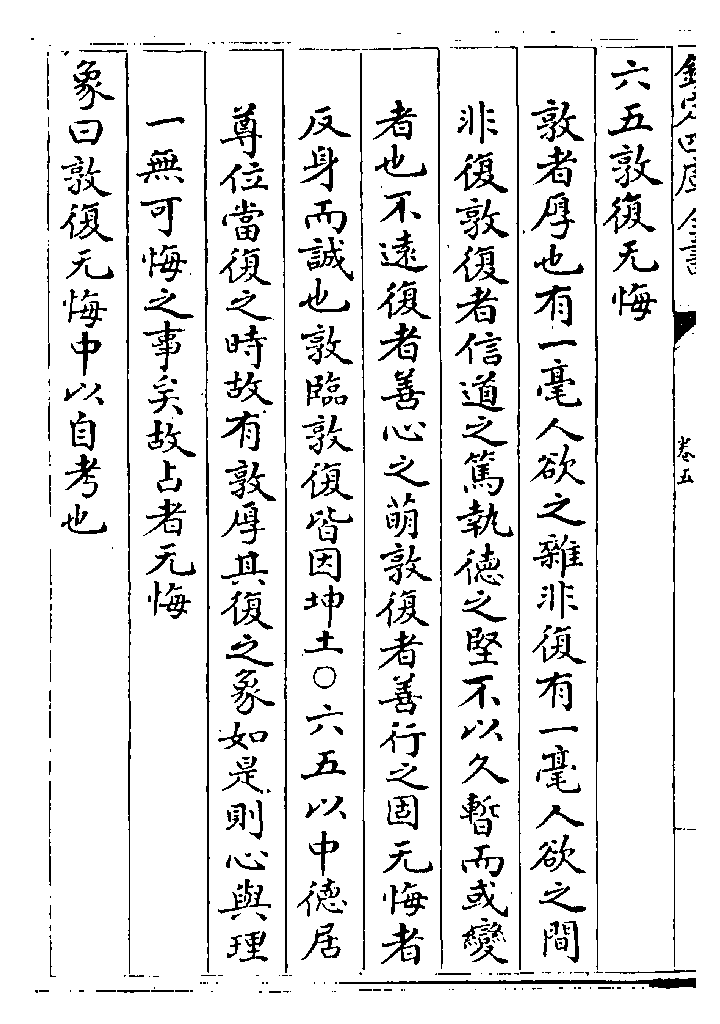 欽定四庫全書
卷五
六五敦復无悔
敦者厚也有一毫人欲之雜非復有一毫人欲之間
非復敦復者信道之篤執德之堅不以久暫而或變
者也不遠復者善心之萌敦復者善行之固无悔者
反身而誠也敦臨敦復皆因坤土○六五以中德居
尊位當復之時故有敦厚其復之象如是則心與理
一無可悔之事矣故占者无悔
象曰敦復无悔中以自考也